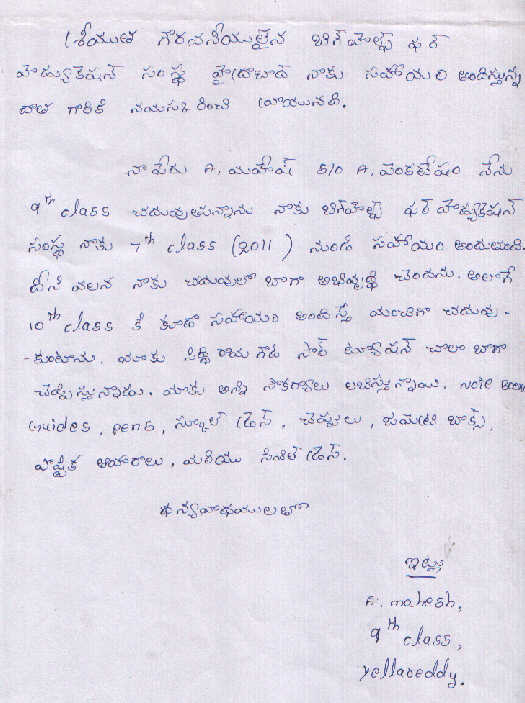 శ్రీయుత గౌరవనీయులైన బిగ్ హెల్ప్ ఫర్
ఎడ్యుకేషన్ సంస్థ హైదరాబాద్ నాకు సహాయం అందిస్తున్న
దాత గారికి నమస్కరించి వ్రాయునది.
నా పేరు A. మహేష్ S/O A. వెంకటేషం నేను
9th class చదువుతున్నాను నాకు బిగ్ హెల్ప్ ఫర్ ఎడ్యుకేషన్
సంస్థ నాకు 7th class (2011) నుండి సహాయం అందుతుంది.
దీని వలన నాకు చదువులో బాగా అభివృద్ధి చెందాను. అలాగే
10th class కి కూడా సహాయం అందిస్తే మంచిగా చదువు-
-కుంటాను. మాకు సార్ ట్యూషన్ చాలా బాగా
చెప్తున్నారు. మాకు అన్ని సౌకర్యాలు లభిస్తున్నాయి. Note Books
Guides, pens, స్కూల్ డ్రెస్, చెప్పులు, జామెట్రి బాక్స్,
పౌష్టిక ఆహారాలు, మరియు సివిల్ డ్రెస్.
ధన్యవాదములతో
ఇట్లు
A. mahesh,
9th class,
Yellareddy.